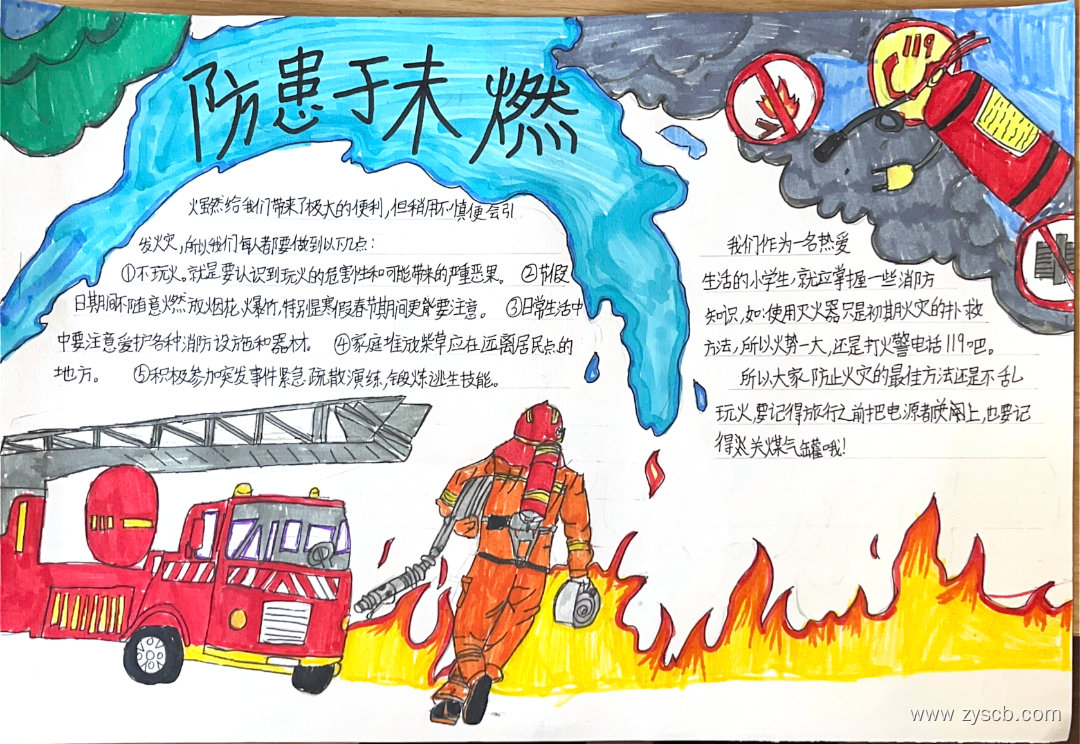 防患于未燃
119
火虽然给我们带来了极大的便利,但稍用不慎便会引
发火灾,所以我们每人都要做到以下几点:
①不玩火。就是要认识到玩火的危害性和可能带来的严重恶果。 ②节假
日期间不随意燃放烟花,火暴竹,特别是寒假春节期间更能要注意。 ③日常生活中
中要注意爱护各种消防设施和器材。 ④家庭堆放柴草应在远离居民点的
地方。 ⑤积极参加突发事件紧急疏散演练,锻炼逃生技能。
我们作为一名热爱
生活的小学生,就应掌握一些消防
知识,如:使用灭火器只是初期火灾的扑救
方法,所以火势一大,还是打火警电话119吧。
所以大家防止火灾的最佳方法还是不乱
玩火,要记得旅行之前把电源都关闭上,也要记
得关煤气罐哦!
www.zyscb.com